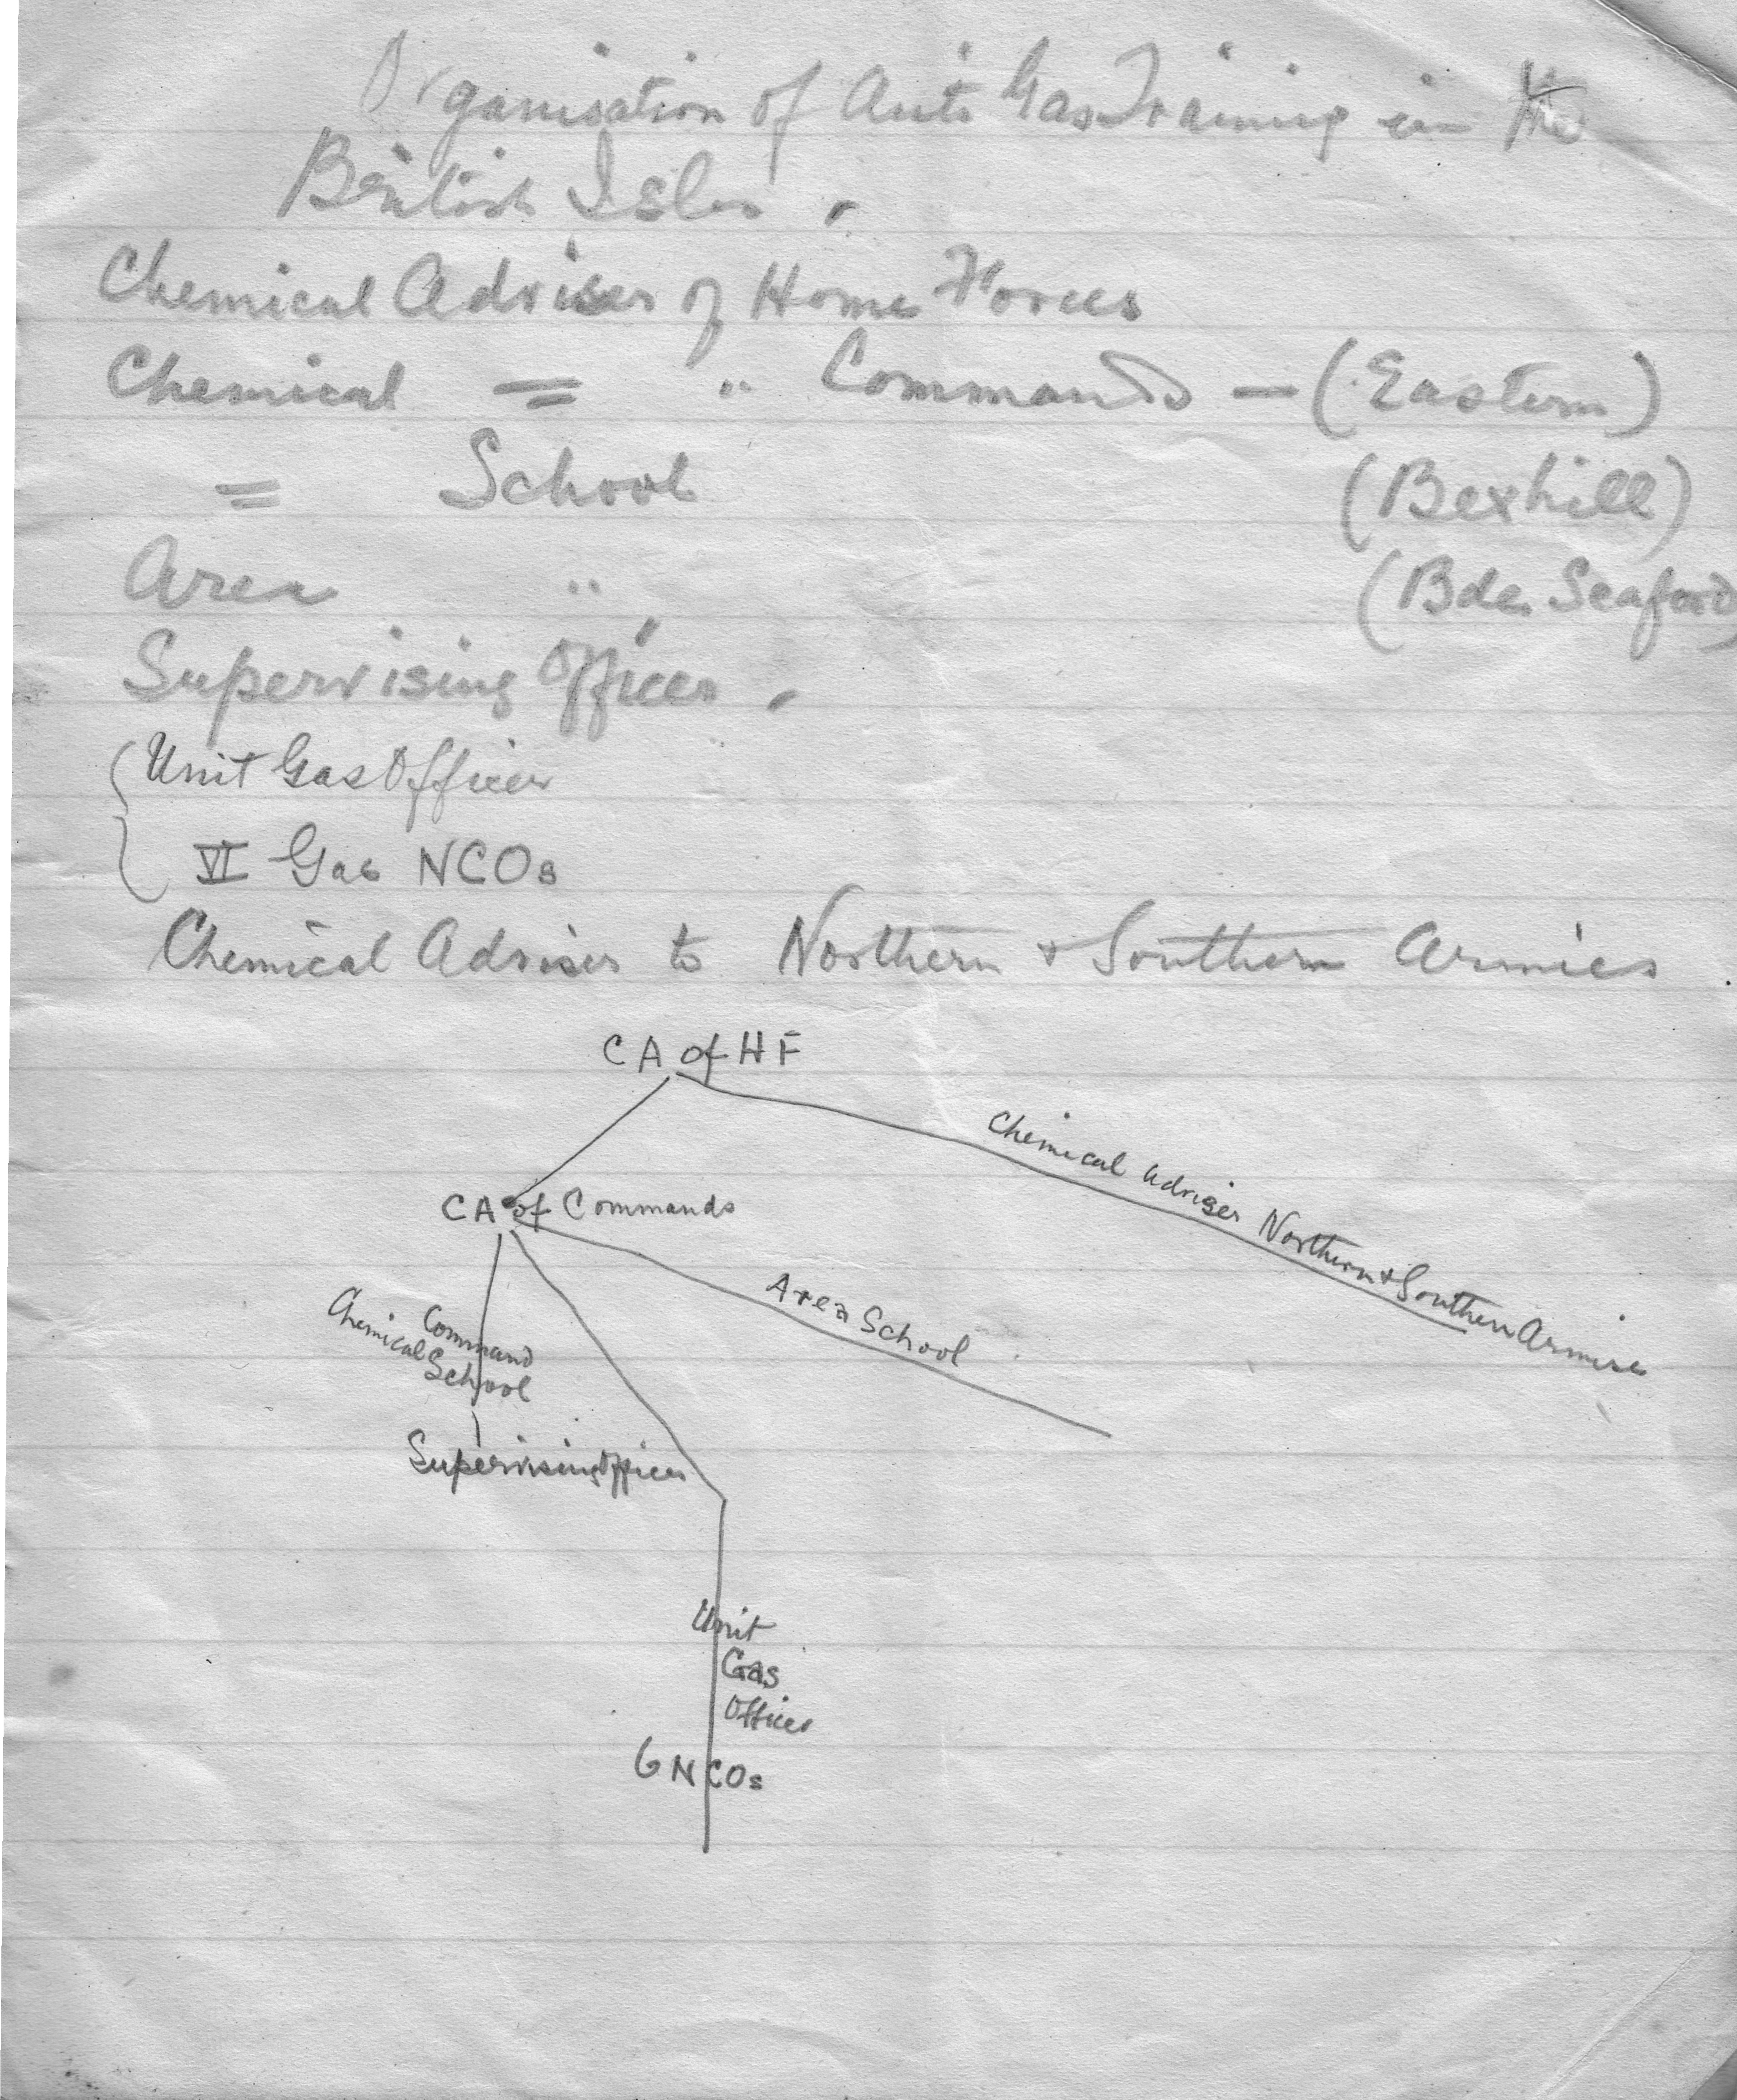 Organisation of Anti Gas Training in the
British Isles.
Chemical Adviser of Home Forces
Chemical = " Commands - (Eastern)
= School (Bexhill)
Area " (Bde. Seaford)
Supervising Officer.
Unit Gas Officer
VI Gas NCOs
Chemical Adviser to Northern & Southern Armies.
CA of HF
Chemical Adviser Northern & Southern Armies
CA of Commands
Area School
Command
Chemical School
Supervising Officer
Unit
Gas
Officer
6 NCOs